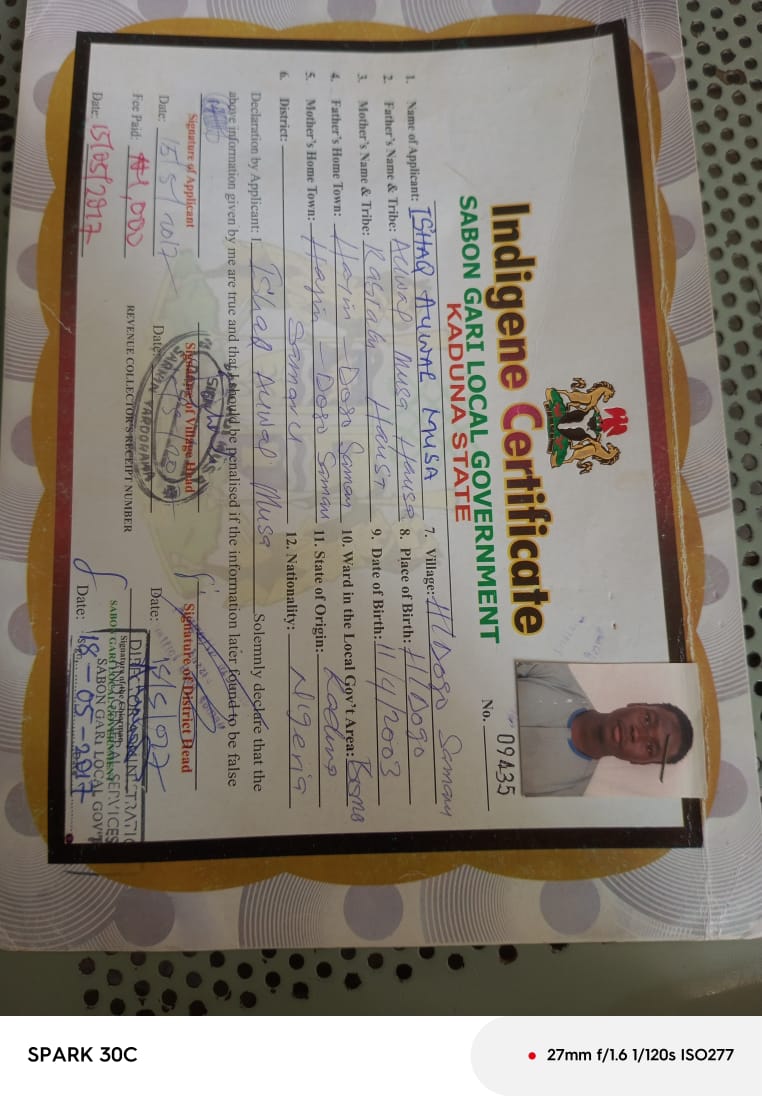 Indigene Certificate
SABON GARI LOCAL GOVERNMENT
KADUNA STATE
No. 09435
1. Name of Applicant: ISHAQ AUWAL MUSA
2. Father's Name & Tribe: Auwal Musa Hausa
3. Mother's Name & Tribe: Hausa
4. Father's Home Town: Hayin - Dogo Samaru
5. Mother's Home Town: Hayin - Dogo Samaru
6. District: Samaru
7. Village: H/Dogo Samaru
8. Place of Birth: H/Dogo
9. Date of Birth: 11/4/2003
10. Ward in the Local Gov't Area:
11. State of Origin: Kaduna
12. Nationality: Nigeria
Declaration by Applicant: I, Ishaq Auwal Musa Solemnly declare that the
above information given by me are true and that I should be penalised if the information later found to be false
Signature of Applicant
Signature of Village Head
Signature of District Head
Date: 15/5/2017
Date:
Date: 15/5/017
Fee Paid: ₦1,000
REVENUE COLLECTOR'S RECEIPT NUMBER
SABON GARI LOCAL GOV'T
Date: 15/05/2017
Date: 18-05-2017
SPARK 30C
27mm f/1.6 1/120s ISO277